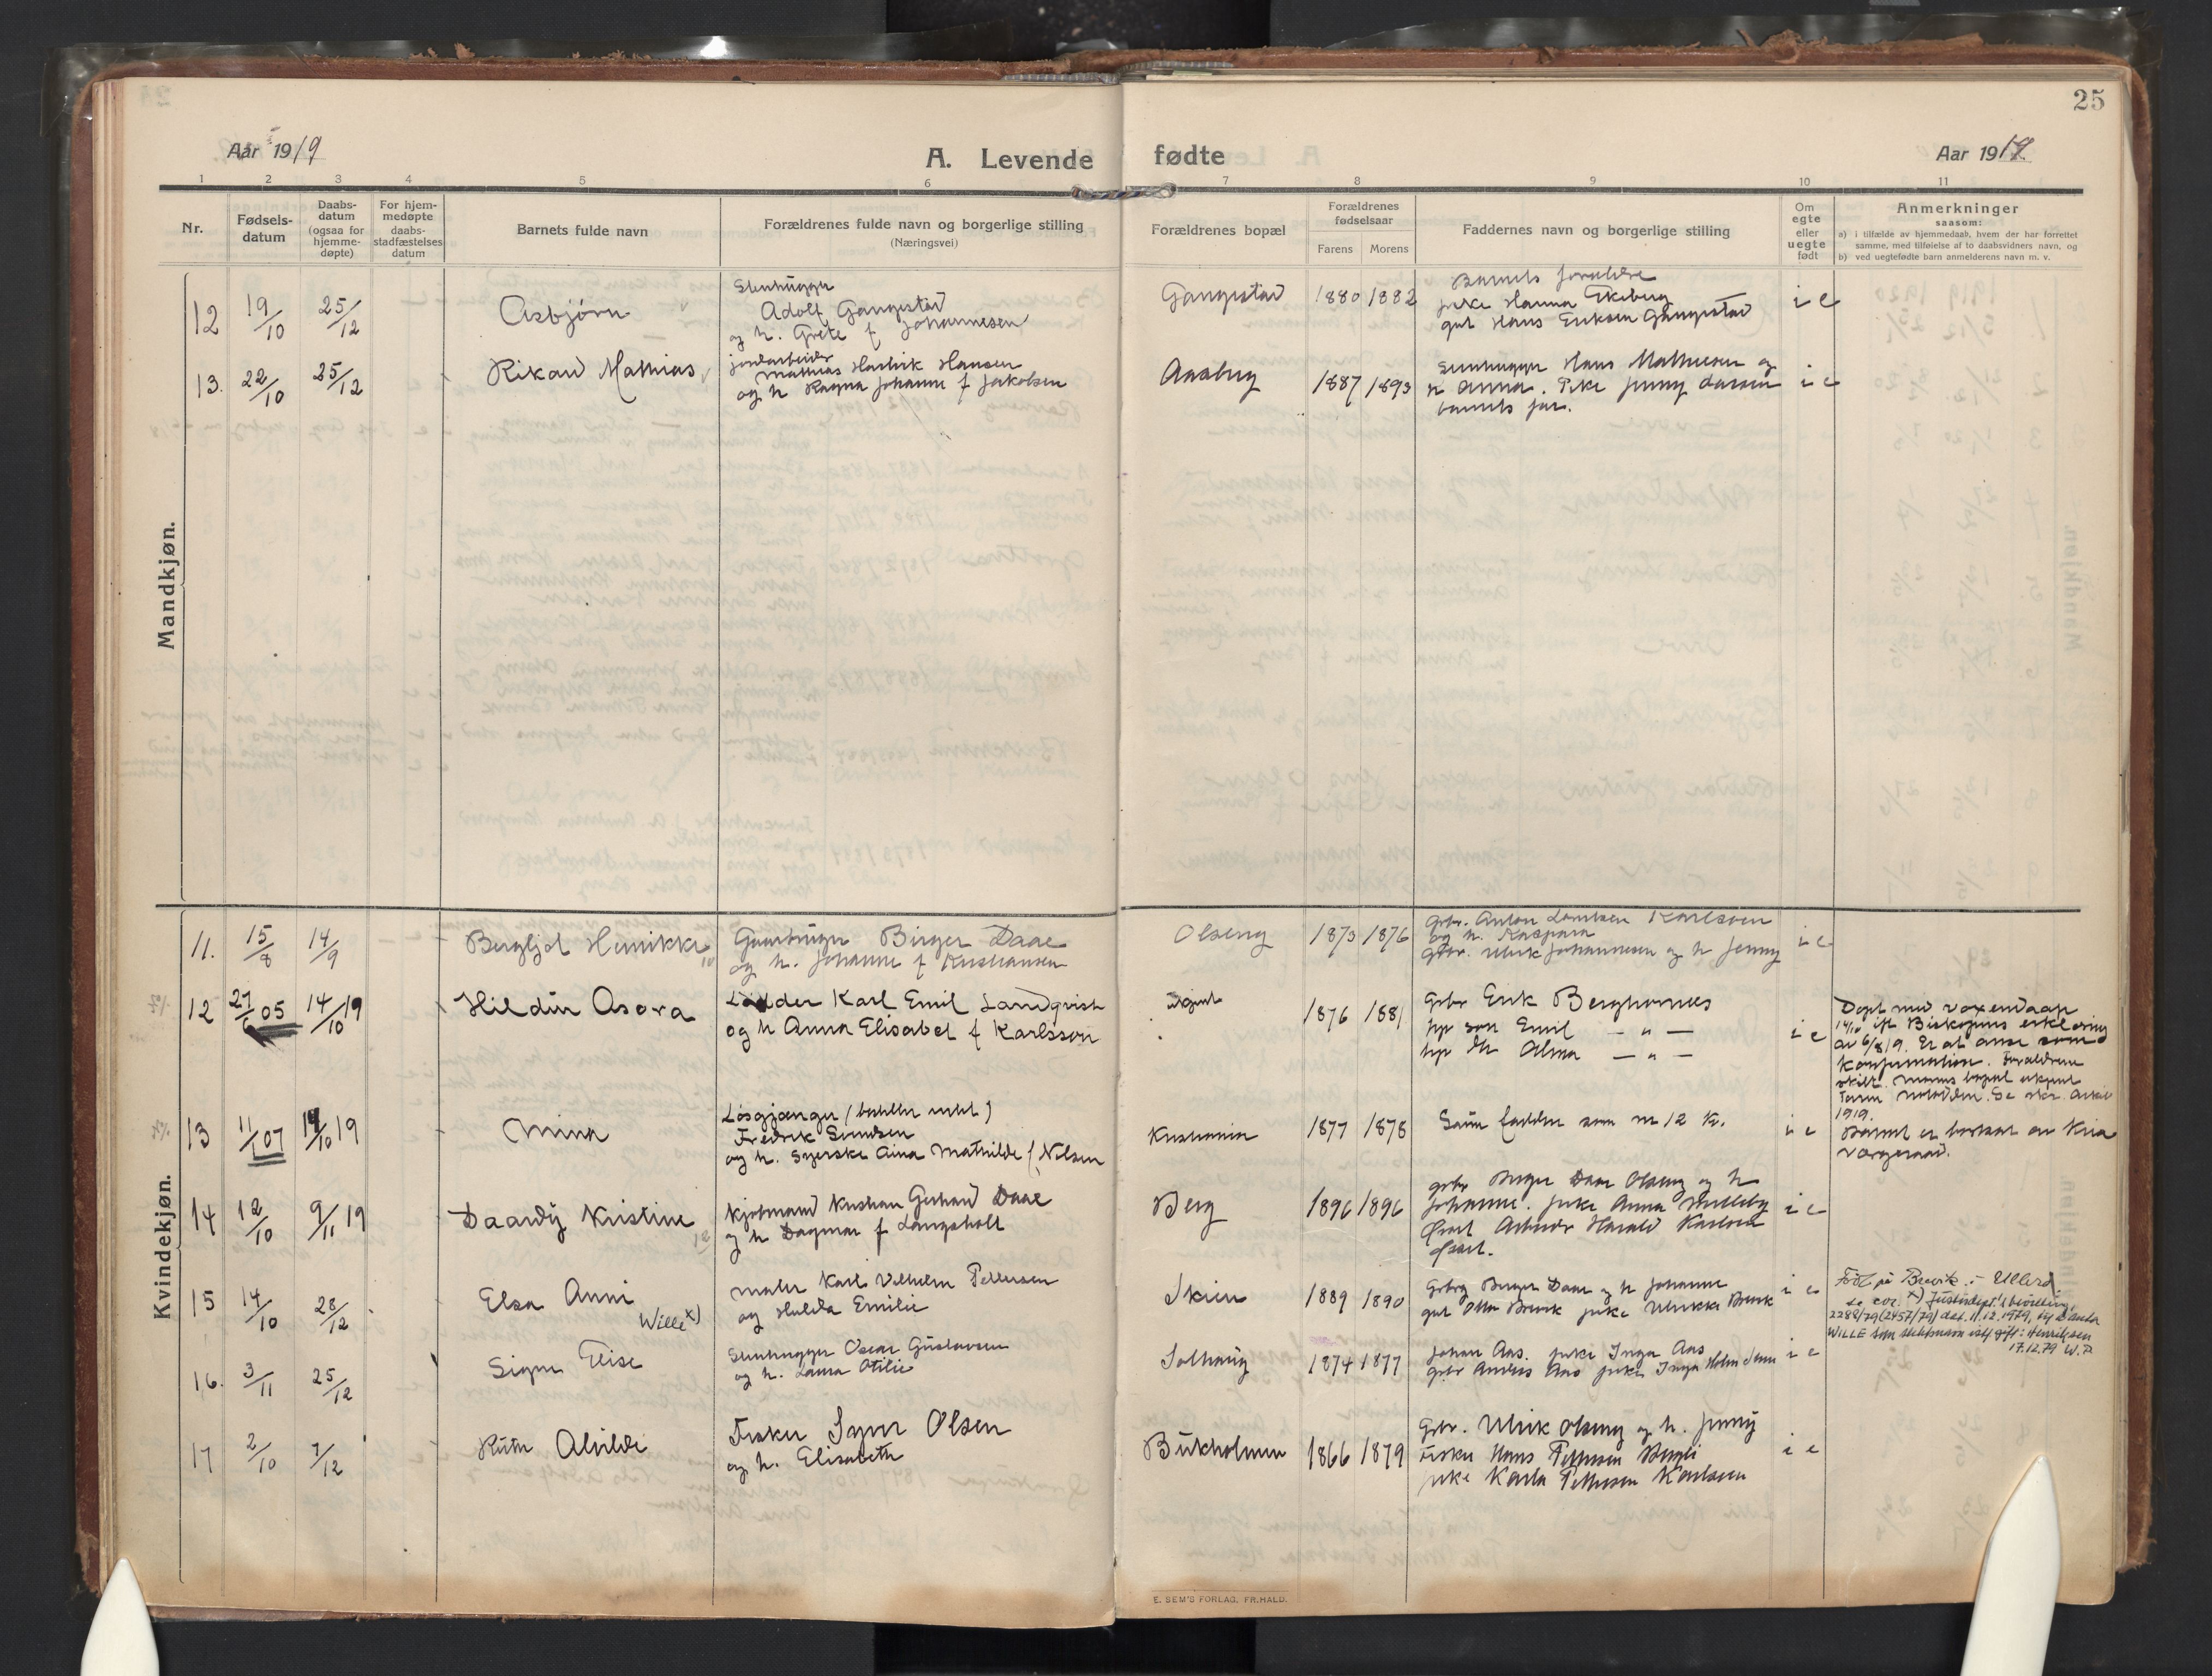 25
Aar 1919
A. Levende fødte
Aar 1919
1 2 3 4 5 6 7 8 9 10 11
Nr.
Fødsels-
datum
Daabs-
datum
(ogsaa for
hjemme-
døpte)
For hjem-
medøpte
daabs-
stadfæstelses
datum
Barnets fulde navn
Forældrenes fulde navn og borgerlige stilling
(Næringsvei)
Forældrenes bopæl
Forældrenes
fødselsaar
Farens Morens
Faddernes navn og borgerlige stilling
Om
egte
eller
uegte
født
Anmerkninger
saasom:
a) i tilfælde av hjemmedaab, hvem der har forrettet
samme, med tilføielse af to daabsvidners navn, og
b) ved uegtefødte barn anmelderens navn m. v.
Mandkjøn.
12 19/10 25/12 Asbjørn
Stenhugger
Adolf Gangestad
og h. Grete f Johannesen
Gangestad 1880 1882
Barnets forældre
pike Hanna Ekeberg
gut Hans Eriksen Gangestad
i e
13. 22/10 25/12 Rikard Mathias
jordarbeider
Mathias Hartvik Hansen
og h Ragna Johanne f Jakobsen
Aasberg 1887 1893
Stenhugger Hans Mathiesen og
h Anna. Pike Jenny Larsen
barnets far.
i e
Kvindekjøn.
11. 15/8 14/9 Bergljot Henrikke
Gaardbruger Birger Daae
og h. Johanne f Kristiansen
Olseng 1873 1876
Gbr. Anton Lauritsen Karlsven
og h. Kaspara
gbr. Ulrik Johannesen og h Jenny
i e
12 27/6 05 14/10 19 Hildur Asora
Karl Emil Landqvist
og h Anna Elisabet f Karlsson
1876 1881
Gbr Erik Berghornes
hp søn Emil — " —
hp dtr Alma — " —
i e
Døpt med voxendaap
14/10 ift Biskopens erklæring
av 6/8 19. Er at anse som
Konfirmation. Forældrene
skilt. Morens bopæl ukjent
Faren Notodden. Se skr. arkiv
1919.
13 11/1 07 14/10 19 Mina
Løsgjænger
Fredrik Svendsen
og h. Syerske Aina Mathilde f. Nilsen
Kristiania 1877 1878
Samme faddere som nr 12 K.
i e
Barnet er bortsat av Kria
Vergeraad.
14 12/10 9/11 19 Daardy Kristine
Kjøbmand Kristian Gerhard Daae
og h Dagmar f Langsholt
Berg 1896 1896
gbr Birger Daae Olseng og h
Johanne. pike Anna
Arbeider Harald Karlsen
i e
15 14/10 28/12 Elsa Anni
Wille x)
maler Karl Vilhelm Pettersen
og Hulda Emilie
Skien 1889 1890
Gbrg Birger Daae og h Johanne
gut Otto Brevik pike Ulrikke Brevik
i e
Født på Brevik i Ullerø
se cor. x) Justisdept's bevilling
2288/79 (2457/79) dat. 11.12.1979, til å anta
WILLE som slektsnavn istf gift: Henriksen
17.12.79 W.P.
16. 3/11 25/12 Signe Elise
Stenhugger Oscar Gustavsen
og h. Laura Otilie
Solhaug 1874 1877
Johan Aas. pike Inga Aas
Gbr Anders Aas pike Inga Holm
i e
17 2/10 7/12 Ruth Alvilde
Fisker Syver Olsen
og h. Elisabeth
Bukholmen 1866 1879
Gbr. Ulrik Olseng og h. Jenny
Fisker Hans Pettersen Bergli
pike Karla Pettersen Karlsven
i e
E. SEM'S FORLAG, FR.HALD.